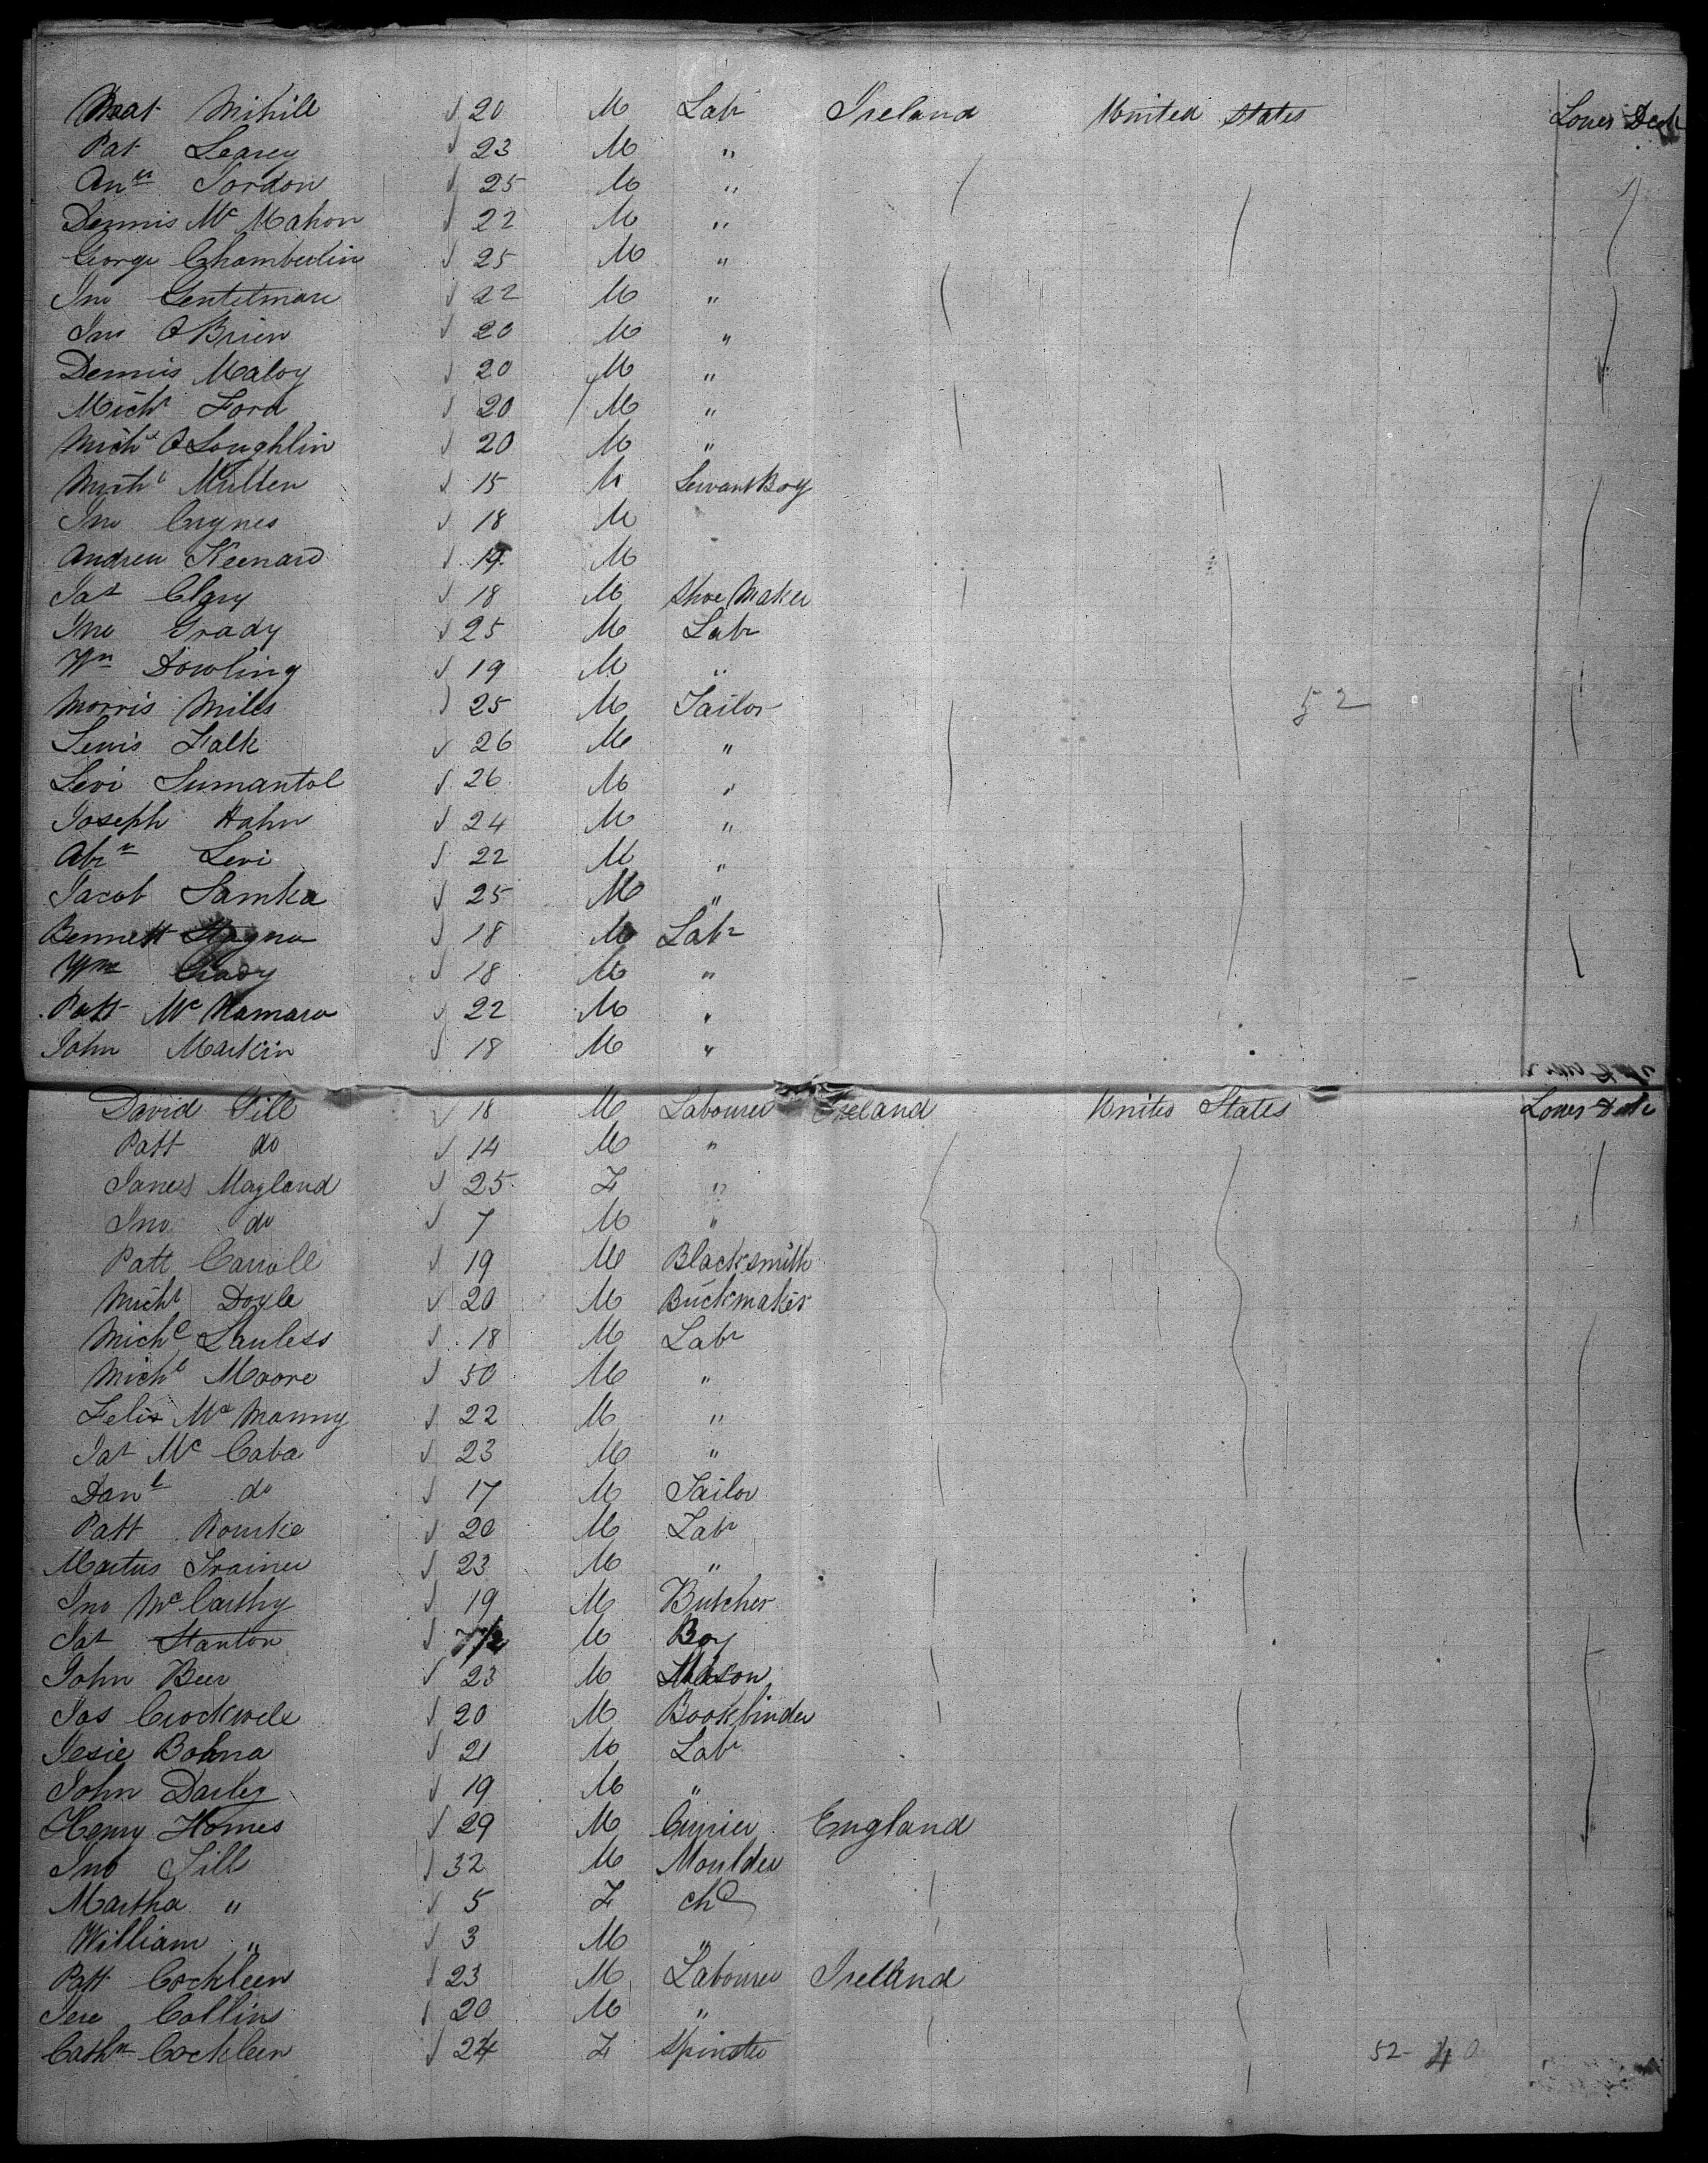 Mat Mihill 20 M Labr Ireland United States Lower Deck
Pat Learey 23 M "
Anw Jordon 25 M "
Dennis Mc Mahon 22 M "
George Chamberlin 25 M "
Jno Gentelman 22 M "
Jno O Brien 20 M "
Dennis Maloy 20 M "
Michl Ford 20 M "
Michl O Loughlin 20 M "
Michl Mullen 15 M Servant Boy
Jno Cuynes 18 M
Andrew Keenard 19 M
Pat Clary 18 M Shoe Maker
Jno Grady 25 M Labr
Wm Dowling 19 M "
Morris Miles 25 M Tailor 52
Lewis Falk 26 M "
Levi Sumantol 26 M "
Joseph Hahn 24 M "
Abrm Levi 22 M "
Jacob Samka 25 M "
Bennett 18 M Labr
Wm Grady 18 M "
Patt Mc Namara 22 M "
John Markin 18 M "
David Gill 18 M Labourer Ireland United States Lower Deck
Patt do 14 M "
James Magland 25 F "
Jno do 7 M "
Patt Carroll 19 M Blacksmith
Michl Doyle 20 M Buckmaker
Michl Lawless 18 M Labr
Michl Moore 50 M "
Felix Mc Manny 22 M "
Pat Mc Caba 23 M "
Danl do 17 M Tailor
Patt Rourke 20 M Labr
Martus Trainer 23 M "
Jno Mc Carthy 19 M Butcher
Pat Stanton 7 1/2 M Boy
John Beer 23 M Mason
Jas Crockwell 20 M Bookbinder
Jesie Bohna 21 M Labr
John Darley 19 M "
Henry Homes 29 M Currier England
Jno Gill 32 M Moulder
Martha " 5 F chd
William " 3 M "
Patt Cockleen 23 M Labourer Ireland
Jere Collins 20 M "
Cathn Cockleen 24 F Spinster 52- 40